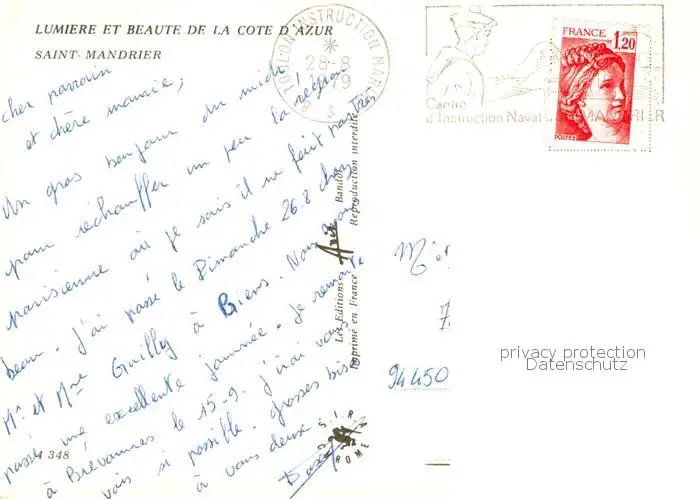 LUMIERE ET BEAUTE DE LA COTE D'AZUR
SAINT-MANDRIER
TOULON INSTRUCTION MAR
28-8
Centre
d'Instruction Naval MANDRIER
FRANCE
1,20
POSTES
cher parrain
et chère marraine,
Un gros bonjour du midi
pour réchauffer un peu la région
parisienne où je sais il ne fait pas très
beau. J'ai passé le Dimanche 26.8 chez
Mr et Mme Guilly à Biens. Nous avons
passé une excellente journée. Je remonte
à Brévannes le 15-9. J'irai vous
voir si possible. grosses bises
à vous deux
Les Editions Azif Bandol
Imprimé en France Reproduction interdite
M et
7
94450
privacy protection
Datenschutz
A 348